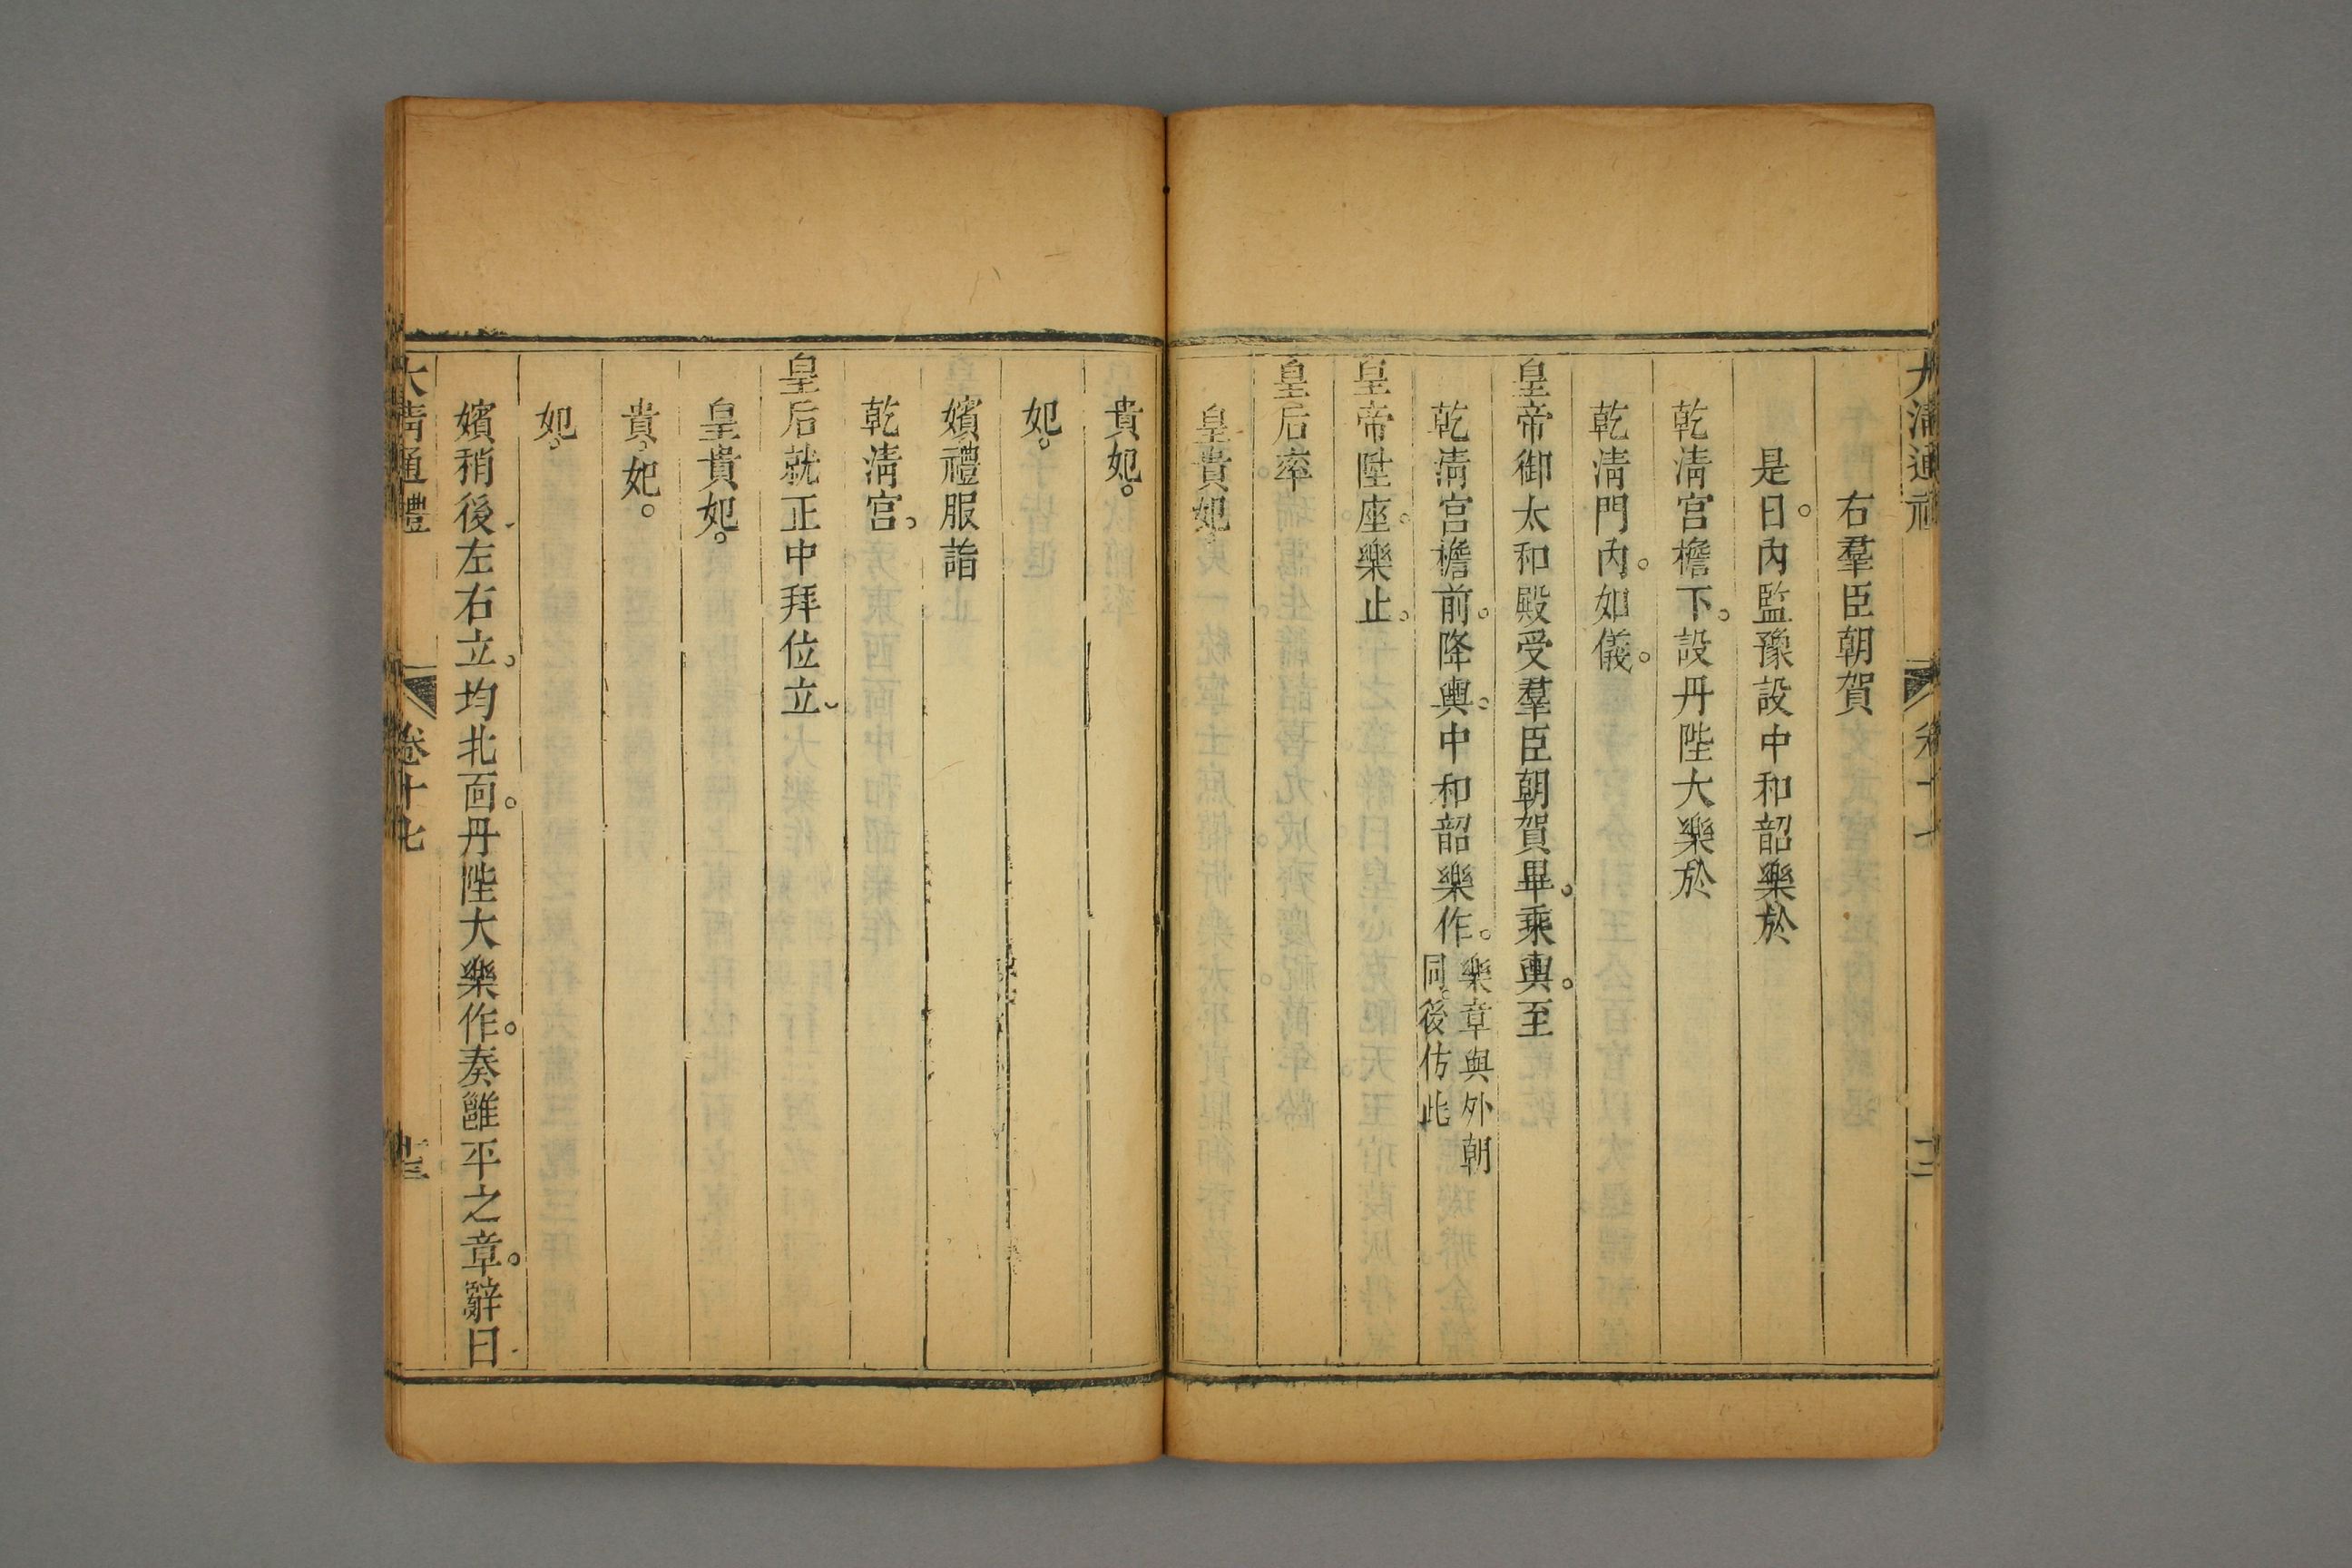 大清通禮 卷十七 十二
右羣臣朝賀
是日。內監豫設中和韶樂於
乾清宮檐下。設丹陛大樂於
乾清門內。如儀。
皇帝御太和殿受羣臣朝賀畢。乘輿。至
乾清宮檐前。降輿。中和韶樂作。樂章與外朝
同。後仿此
皇帝陞座。樂止。
皇后率
皇貴妃。
貴妃。
妃。
嬪禮服詣
乾清宮。
皇后就正中拜位立。
皇貴妃。
貴。妃。
妃。
嬪稍後。左右立。均北面。丹陛大樂作。奏雝平之章。辭曰
大清通禮 卷十七 十三